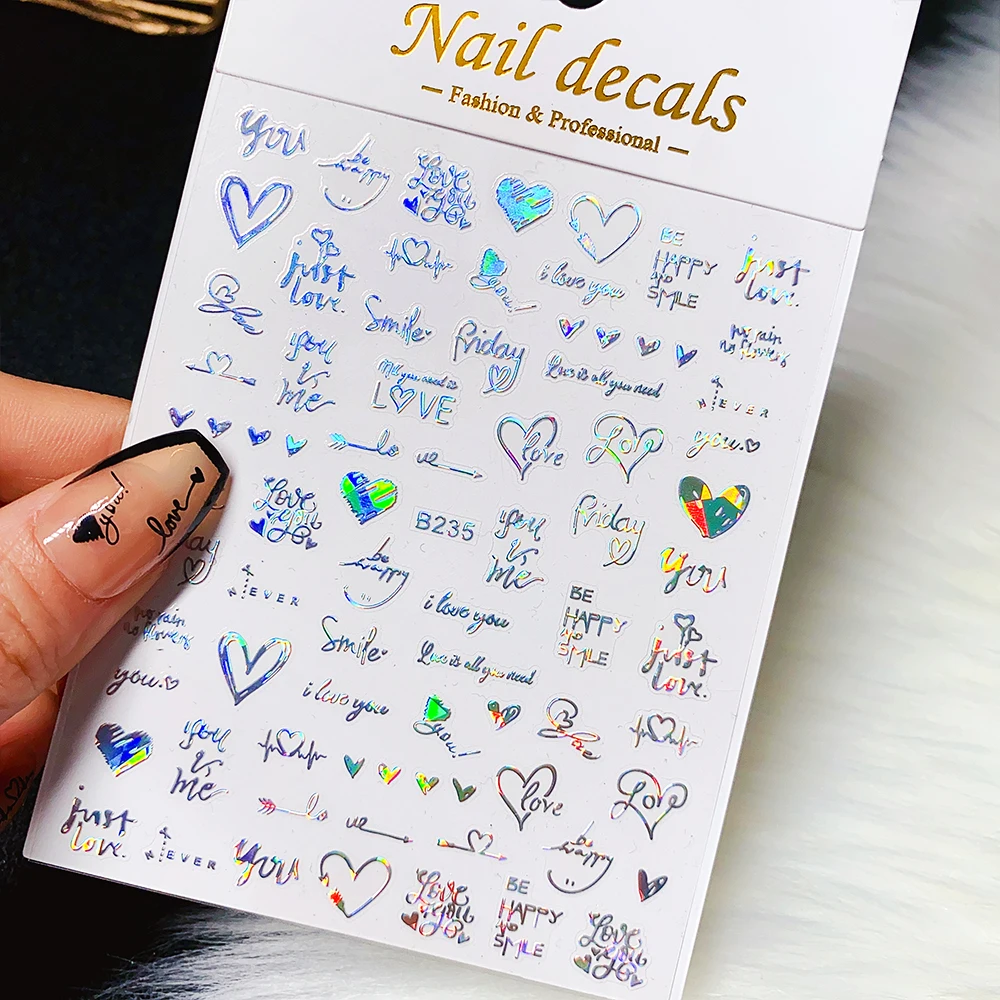 Nail decals
— Fashion & Professional —
you
be happy
Love you
just love.
i love you
BE HAPPY
SMILE
just love.
Love
Smile
friday
no rain
no flowers
you is me
All you need is
LOVE
Love is all you need
NEVER
you.
lo
ve
love
Love
you!
love
Love you
B235
you is me
friday
you
NEVER
be happy
i love you
BE HAPPY
SMILE
just love.
no rain
no flowers
Smile
Love is all you need
you.
i love you
you!
Love
you is me
love
Love
just love.
NEVER
lo
ve
be happy
you
Love you
BE HAPPY
SMILE
Love you